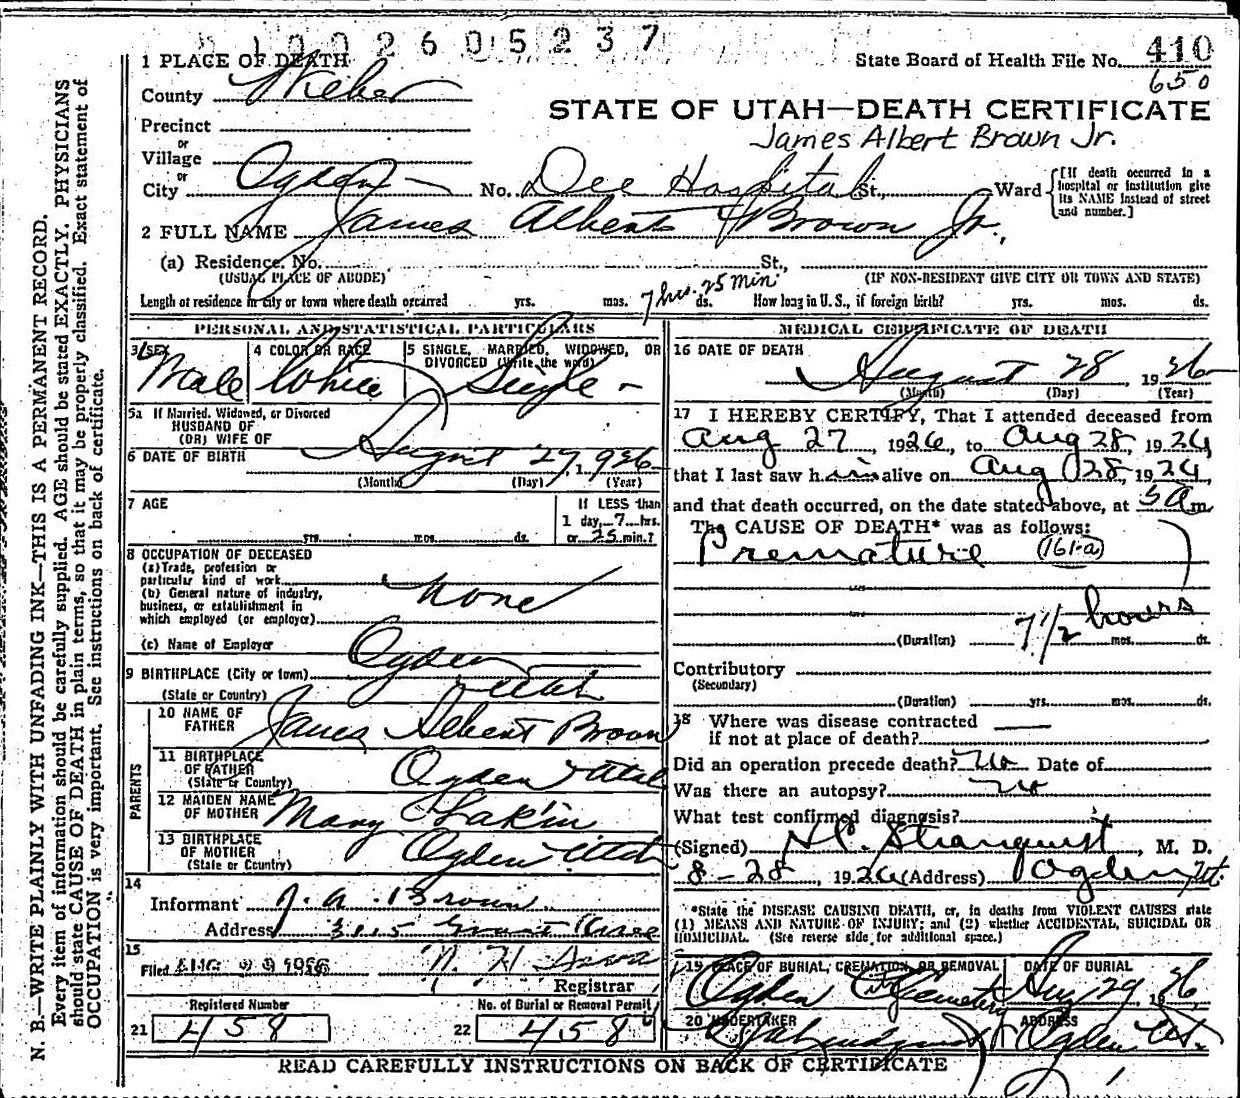 1002605237
1 PLACE OF DEATH
State Board of Health File No. 410
650
County Weber
STATE OF UTAH—DEATH CERTIFICATE
Precinct
James Albert Brown Jr.
or
Village
or
City Ogden No. Dee Hospital St., Ward
[If death occurred in a hospital or institution give its NAME instead of street and number.]
2 FULL NAME James Albert Brown Jr.
(a) Residence, No. St.,
(USUAL PLACE OF ABODE) (IF NON-RESIDENT GIVE CITY OR TOWN AND STATE)
Length of residence in city or town where death occurred yrs. mos. 7 hrs. 25 min. ds. How long in U. S., if foreign birth? yrs. mos. ds.
PERSONAL AND STATISTICAL PARTICULARS
3 SEX Male
4 COLOR OR RACE White
5 SINGLE, MARRIED, WIDOWED, OR DIVORCED (Write the word) Single
5a If Married, Widowed, or Divorced
HUSBAND OF
(OR) WIFE OF
6 DATE OF BIRTH August 27, 1926
(Month) (Day) (Year)
7 AGE yrs. mos. ds.
If LESS than
1 day, 7 hrs.
or 25 min.?
8 OCCUPATION OF DECEASED
(a) Trade, profession or
particular kind of work
(b) General nature of industry,
business, or establishment in
which employed (or employer) none
(c) Name of Employer
9 BIRTHPLACE (City or town) Ogden
(State or Country) Utah
PARENTS
10 NAME OF FATHER James Albert Brown
11 BIRTHPLACE OF FATHER (State or Country) Ogden Utah
12 MAIDEN NAME OF MOTHER Mary Lakin
13 BIRTHPLACE OF MOTHER (State or Country) Ogden Utah
14
Informant J. A. Brown
Address 3115
15
Filed AUG 29 1926
Registrar
Registered Number
21 458
No. of Burial or Removal Permit
22 458
MEDICAL CERTIFICATE OF DEATH
16 DATE OF DEATH
August 28, 1926
(Month) (Day) (Year)
17 I HEREBY CERTIFY, That I attended deceased from
Aug 27, 1926, to Aug 28, 1926,
that I last saw him alive on Aug 28, 1926,
and that death occurred, on the date stated above, at 5 a m.
The CAUSE OF DEATH* was as follows:
Premature (161-a)
(Duration) 7 1/2 hours mos. ds.
Contributory
(Secondary)
(Duration) yrs. mos. ds.
18 Where was disease contracted
if not at place of death?
Did an operation precede death? no Date of
Was there an autopsy? no
What test confirmed diagnosis?
(Signed) Stranquist, M. D.
8-28, 1926 (Address) Ogden Ut.
*State the DISEASE CAUSING DEATH, or, in deaths from VIOLENT CAUSES state
(1) MEANS AND NATURE OF INJURY; and (2) whether ACCIDENTAL, SUICIDAL OR
HOMICIDAL. (See reverse side for additional space.)
19 PLACE OF BURIAL, CREMATION, OR REMOVAL
Ogden City Cemetery
DATE OF BURIAL
Aug 29 1926,
20 UNDERTAKER
ADDRESS
Ogden Ut.
READ CAREFULLY INSTRUCTIONS ON BACK OF CERTIFICATE
N. B.—WRITE PLAINLY WITH UNFADING INK—THIS IS A PERMANENT RECORD.
Every item of information should be carefully supplied. AGE should be stated EXACTLY. PHYSICIANS
should state CAUSE OF DEATH in plain terms, so that it may be properly classified. Exact statement of
OCCUPATION is very important. See instructions on back of certificate.